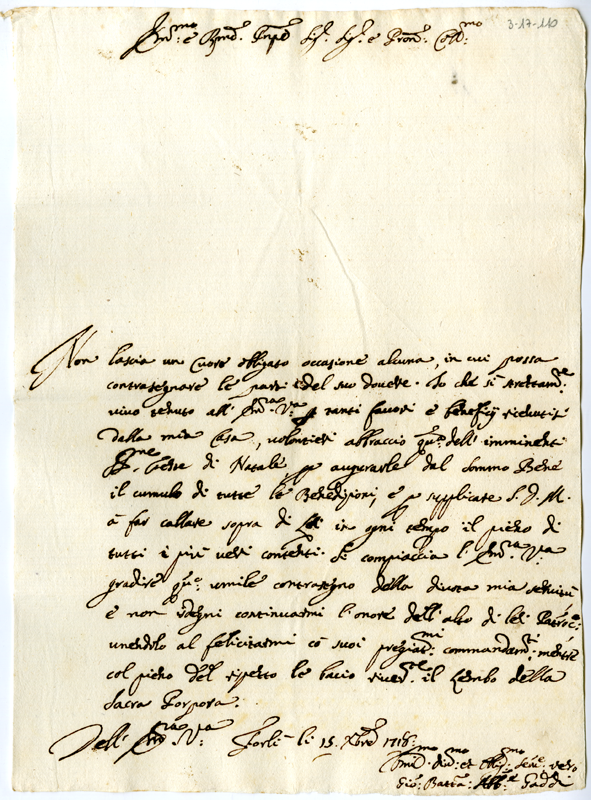 3-17-110
Em.mo e Rmo. Sig.r Sig.r e Pron: Col.mo
Non lascia un Cuore obligato occasione alcuna, in cui possa
contrasegnare le parti del suo dovere. Io che sì strettam.te
vivo tenuto all' Em.za V.ra p tanti favori e beneficij ricevuti
dalla mia Casa, volontieri abbraccio qu.a dell' imminenti
S.me Feste di Natale, p augurarle dal Sommo Bene
il cumulo di tutte le Benedizioni, e p supplicare S. D. M.
à far callare sopra di Lei in ogni tempo il pieno di
tutti i più veri contenti. Si compiaccia l' Em.za V.ra
gradire qu.o umile contrasegno della divota mia servitù
e non sdegni continuarmi l'onore dell' alto di lei Patroc.o:
unendolo al felicitarmi cò suoi pregiat.mi commandam.ti mentre
col pieno del rispetto le bacio river.te il Lembo della
Sacra Porpora.
Dell' Em.za V.ra Forlì li 15 Xbre 1718.
Umil.mo Div.mo et Oblig.mo Ser.e vero
Gio: Batta: Gaddi